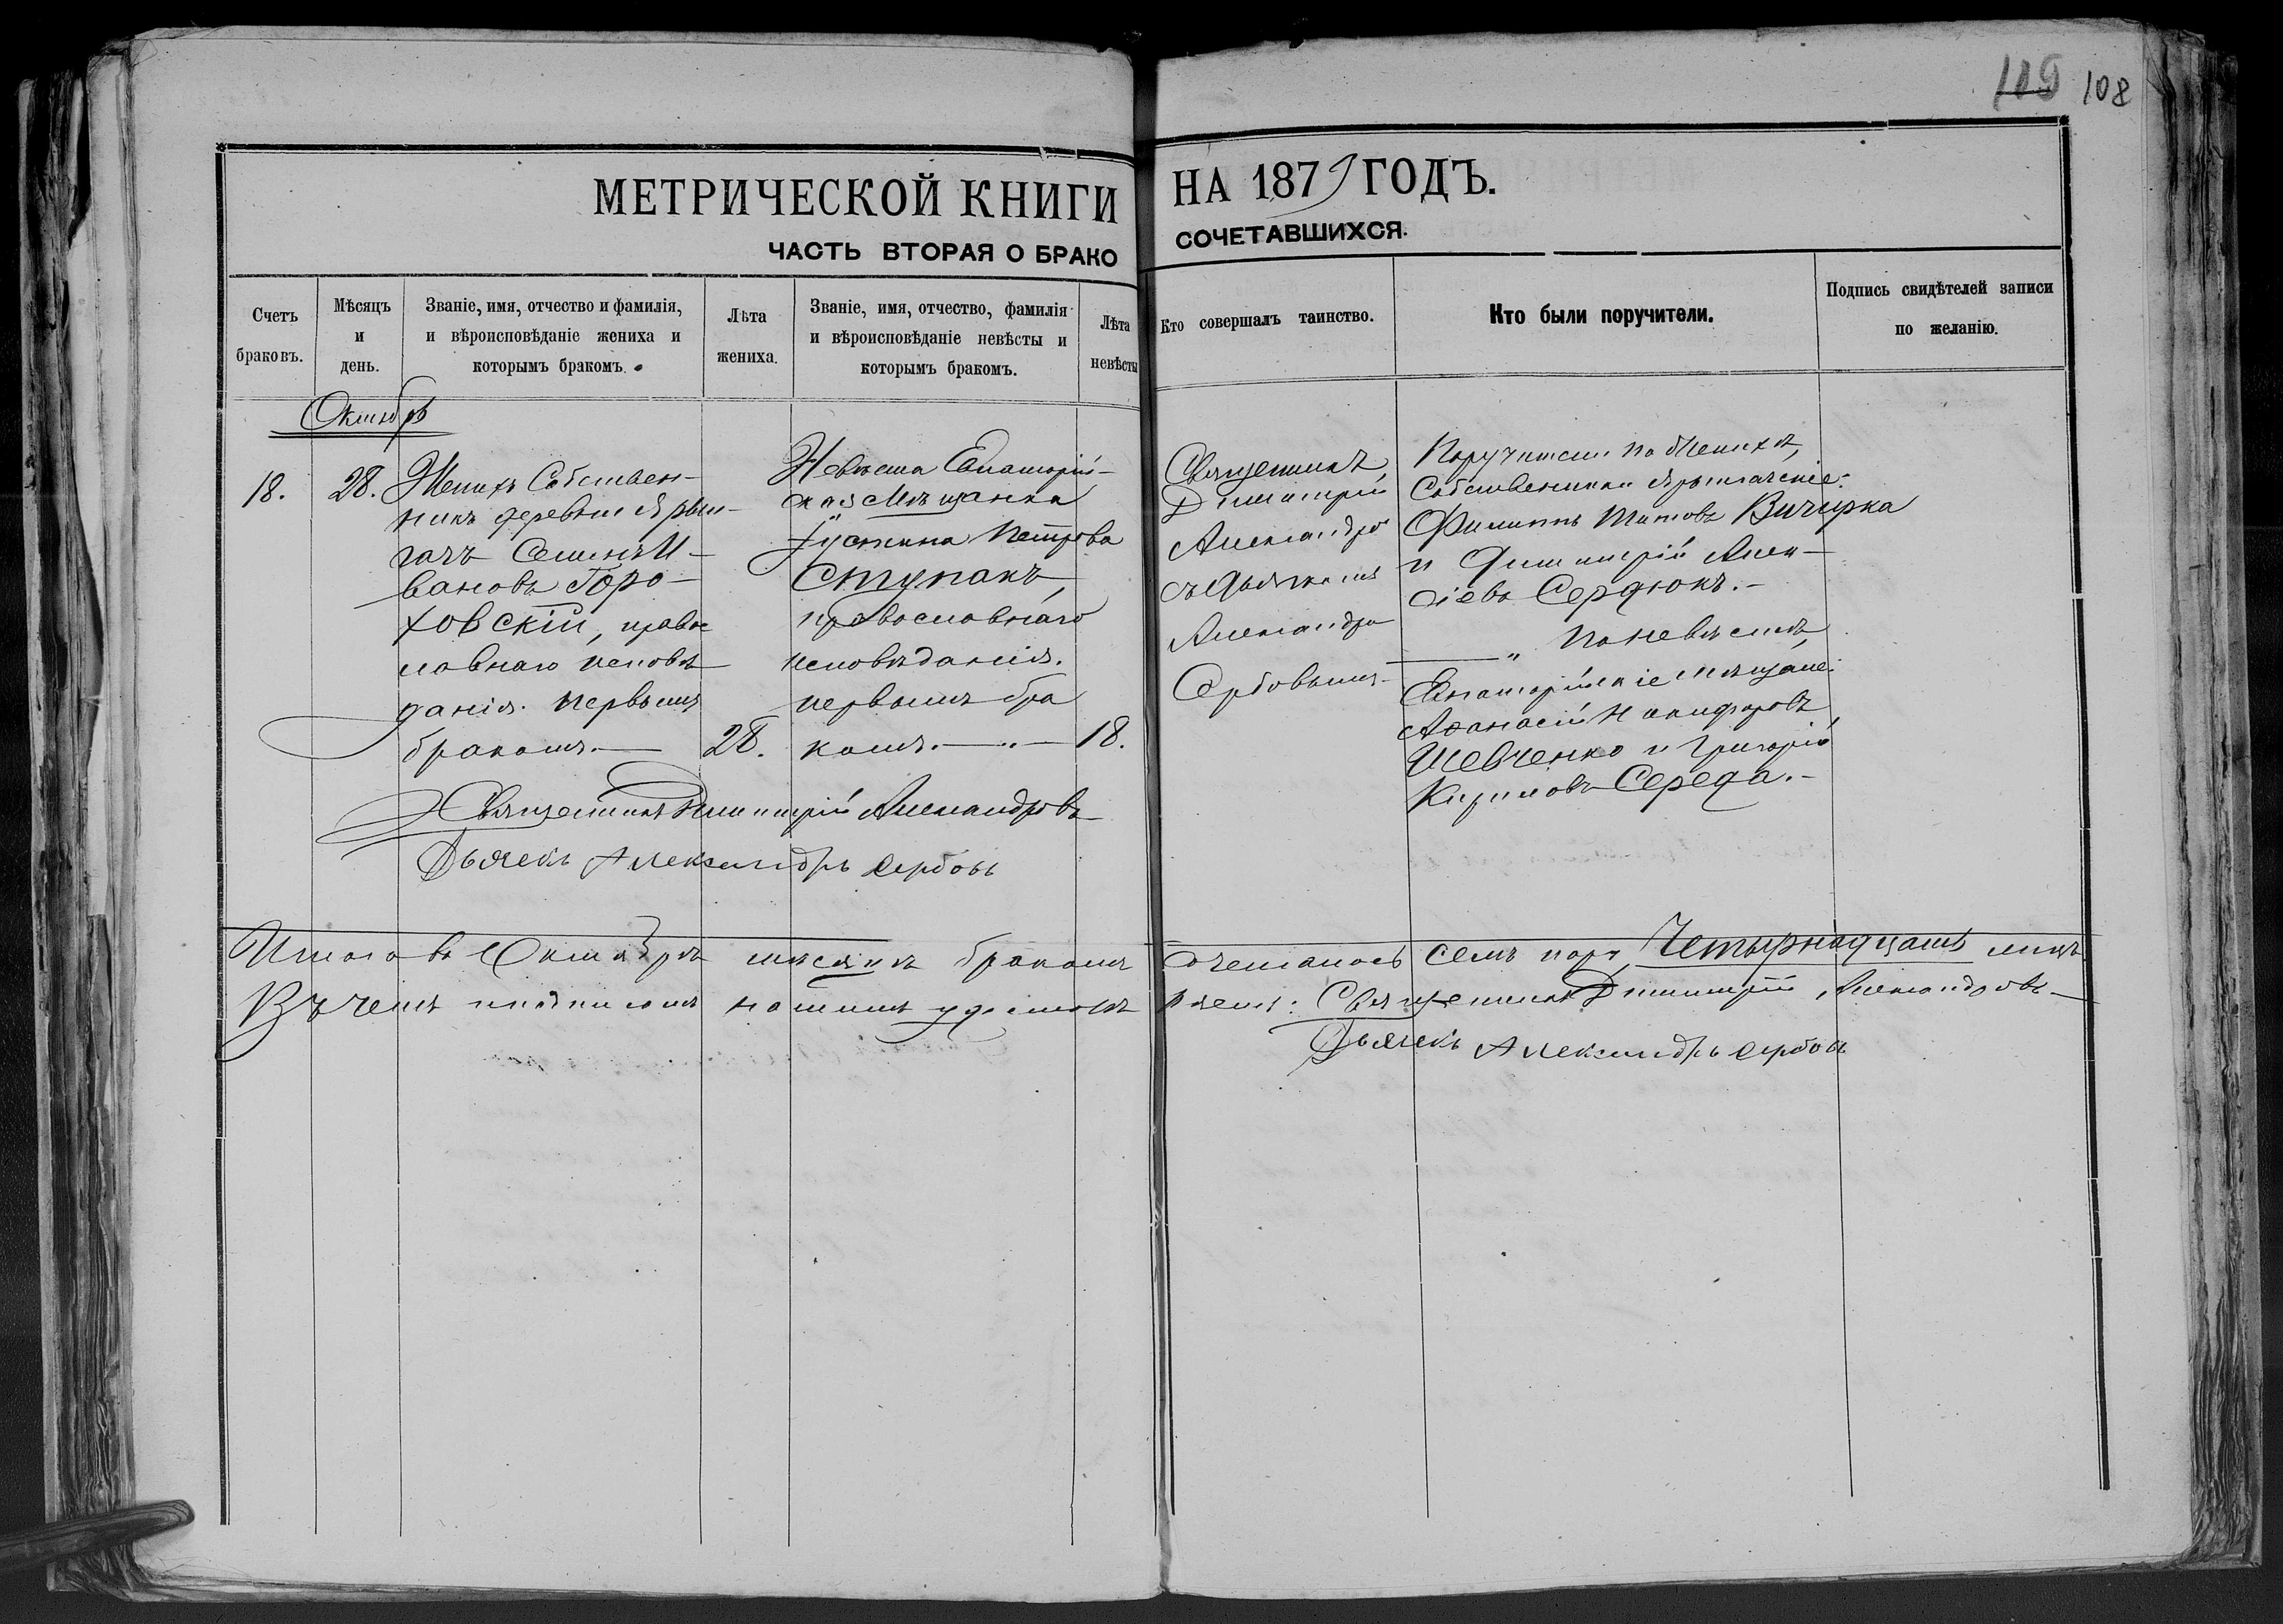 109 108
МЕТРИЧЕСКОЙ КНИГИ НА 1879 ГОДЪ.
ЧАСТЬ ВТОРАЯ О БРАКО СОЧЕТАВШИХСЯ.
Счетъ
браковъ.
Мѣсяцъ
и
день.
Званіе, имя, отчество и фамилія,
и вѣроисповѣданіе жениха и
которымъ бракомъ.
Лѣта
жениха.
Званіе, имя, отчество, фамилія
и вѣроисповѣданіе невѣсты и
которымъ бракомъ.
Лѣта
невѣсты
Кто совершалъ таинство.
Кто были поручители.
Подпись свидѣтелей записи
по желанію.
Октябрь
18.
28.
Женихъ Собствен-
никъ деревни Ярыл-
гачъ Семенъ И-
вановъ Горо-
ховскій, правос
лавнаго исповѣ
данія. первымъ
бракомъ.—
28.
Невѣста Евпаторій-
ская Мѣщанка
Іустина Петрова
Ступакъ,
православнаго
исповѣданія.
первымъ бра
комъ.—"—
18.
Священникъ
Димитрій
Александро
съ Дьячкомъ
Александро
Сербовымъ-
Поручители по Женихѣ,
Собственники Ярылгачскіе:
Филиппъ Титовъ Вичирка
и Димитрій Алек-
сіевъ Сердюкъ.-
—" По невѣстѣ,
Евпаторійскіе мѣщане:
Афанасій Никифоровъ
Шевченко и Григорій
Кириловъ Середа.-
Священникъ Димитрій Александровъ
Дьячекъ Александръ Сербовъ
Итого въ Октябрѣ мѣсяцѣ бракомъ сочеталось семь паръ, Четырнадцать лицъ
Въ чемъ подписомъ нашимъ удостовѣряемъ: Священникъ Димитрій Александровъ-
Дьячекъ Александръ Сербовъ